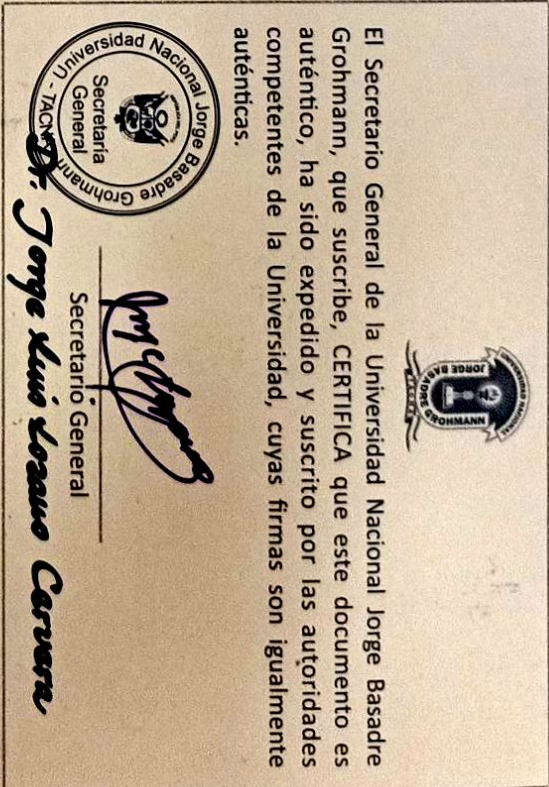 UNIVERSIDAD NACIONAL
JORGE BASADRE
GROHMANN
El Secretario General de la Universidad Nacional Jorge Basadre
Grohmann, que suscribe, CERTIFICA que este documento es
auténtico, ha sido expedido y suscrito por las autoridades
competentes de la Universidad, cuyas firmas son igualmente
auténticas.
Universidad Nacional Jorge Basadre Grohmann - TACNA
Secretaría
General
Secretario General
Dr. Jorge Luis Lozano Cervera